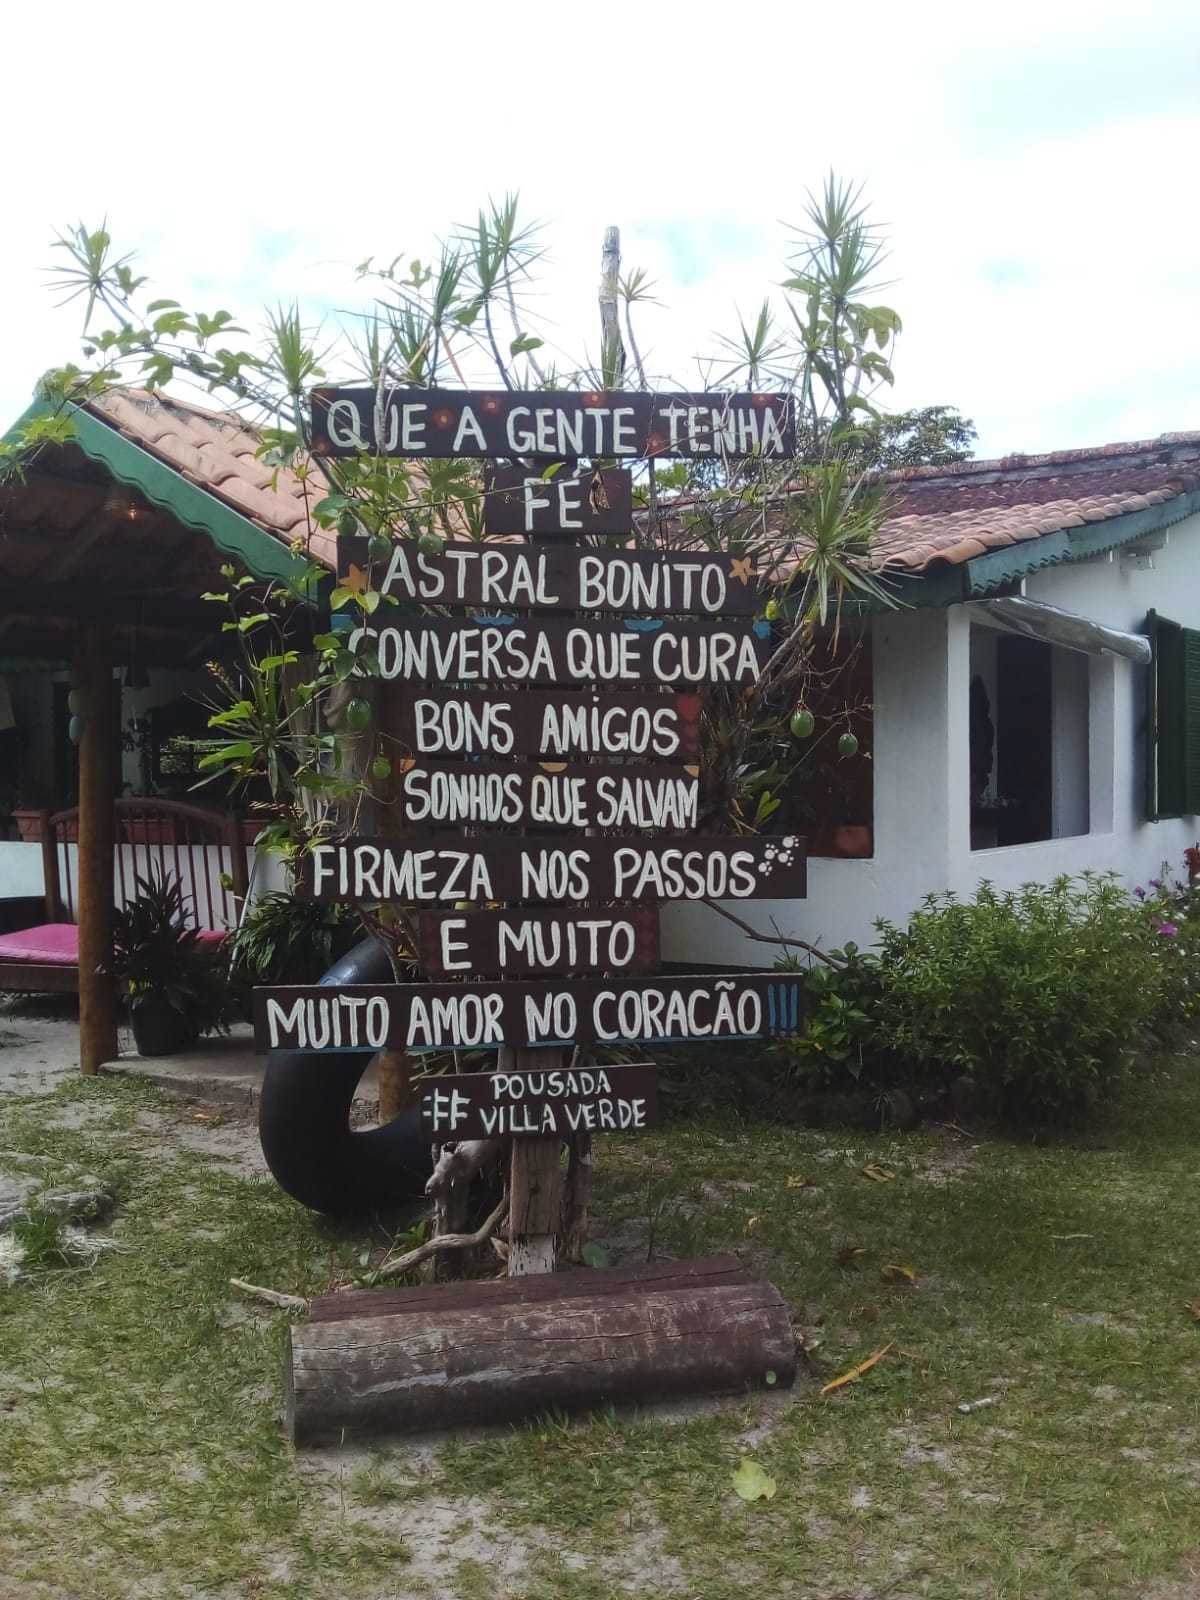 QUE A GENTE TENHA
FÉ
ASTRAL BONITO
CONVERSA QUE CURA
BONS AMIGOS
SONHOS QUE SALVAM
FIRMEZA NOS PASSOS
E MUITO
MUITO AMOR NO CORACÃO!!!
# POUSADA
VILLA VERDE